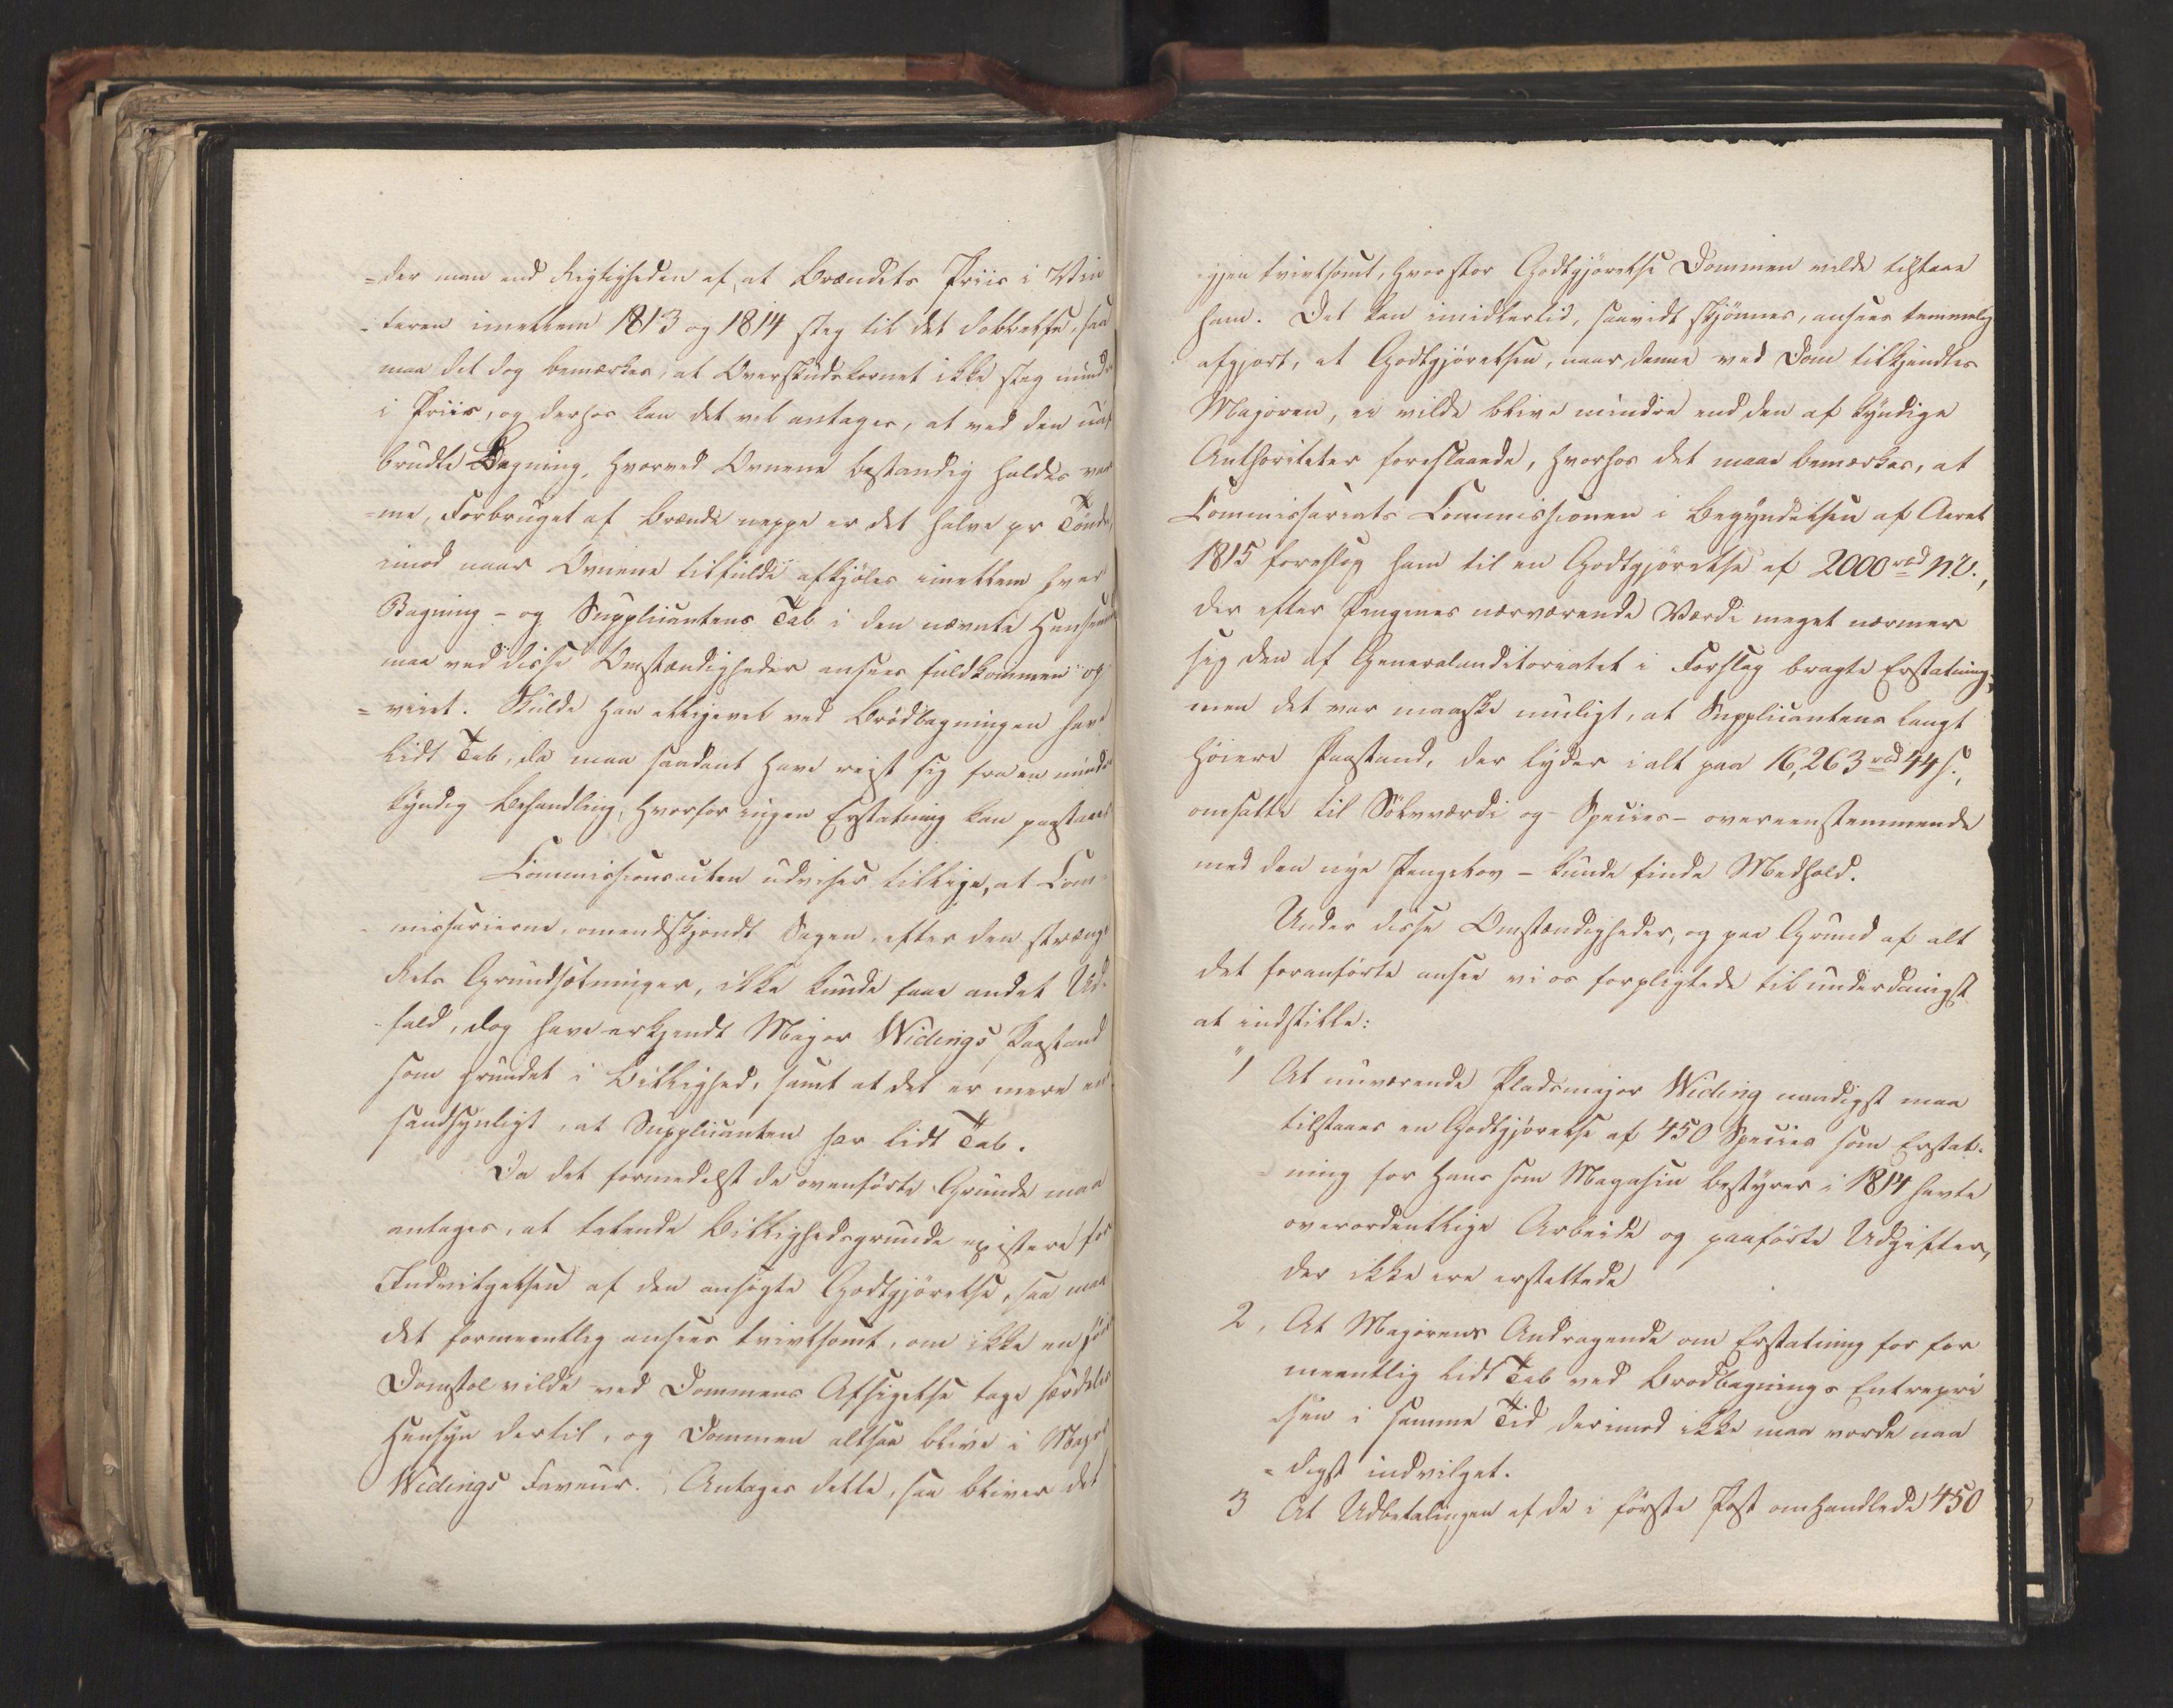 =der man end Rigtigheden af, at Brændets Priis i Vin
=teren imellem 1813 og 1814 steg til det dobbelte, saa
maa det dog bemærkes, at Overskudskornet ikke steg mindre
i Priis, og derhos kan det vel antages, at ved den uaf
brudte Bagning, hvorved Ovnene bestandig holdes var
=me, Forbruget af Brænde neppe er det halve pr Tønde
imod naar Ovnene tilfulde afkjöles imellem hver
Bagning - og Supplicantens Tab i den nævnte Henseende
maa ved disse Omstændigheder ansees fuldkommen op
=veiet. Skulde han alligevel ved Brödbagningen have
lidt Tab, da maa saadant have reist sig fra en mindre
kyndig Behandling, hvorfor ingen Erstatning kan paastaaes
Commissionsacten udviser tillige, at Com-
missarierne, omendskjöndt Sagen, efter den strænge
Rets Grundsætninger, ikke kunde faae andet Ud-
fald, dog have erkjendt Major Widings Paastand
som grundet i Billighed, samt at det er mere end
sandsynligt, at Supplicanten har lidt Tab.
Da det formedelst de ovenförte Grunde maa
antages, at talende Billighedsgrunde existere for
Indvilgelsen af den ansögte Godtgjörelse, saa maa
det formeentlig ansees tvivlsomt, om ikke en
Domstol vilde ved Dommens Afsigelse tage særdeles
Hensyn dertil, og Dommen altsaa blive i Major
Widings Faveur. Antages dette, saa bliver det
igjen tvivlsomt, hvor stor Godtgjörelse Dommen vilde tilstaae
ham. Det kan imidlertid, saavidt skjönnes, ansees temmelig
afgjort, at Godtgjörelsen, naar denne ved Dom tilkjendtes
Majoren, ei vilde blive mindre end den af kyndige
Authoriteter foreslaaede, hvorhos det maae bemærkes, at
Commissariats Commissionen i Begyndelsen af Aaret
1815 foreslog ham til en Godtgjörelse af 2000 rbd N.V.,
der efter Pengenes nærværende Værdi meget nærmer
sig den af Generalauditoriatet i Forslag bragte Erstatning;
men det var maaske muligt, at Supplicantens langt
höiere Paastand, der lyder i alt paa 16,263 rbd 44 s.,
omsatte til Sölvværdi og Species - overeenstemmende
med den nye Pengelov - kunde finde Medhold.
Under disse Omstændigheder, og paa Grund af alt
det foranförte ansee vi os forpligtede til underdanigst
at indstille:
1 At nuværende Pladsmajor Widing naadigst maa
tilstaaes en Godtgjörelse af 450 Species som Erstat-
=ning for hans som Magasin Bestyrer i 1814 havte
overordentlige Arbeide og paaförte Udgifter,
der ikke ere erstattede
2, At Majorens Andragende om Erstatning for for
meentlig lidt Tab ved Brödbagnings Entrepri
=sen i samme Tid derimod ikke maa vorde naa
=digst indvilget.
3 At Udbetalingen af de i förste Post omhandlede 450